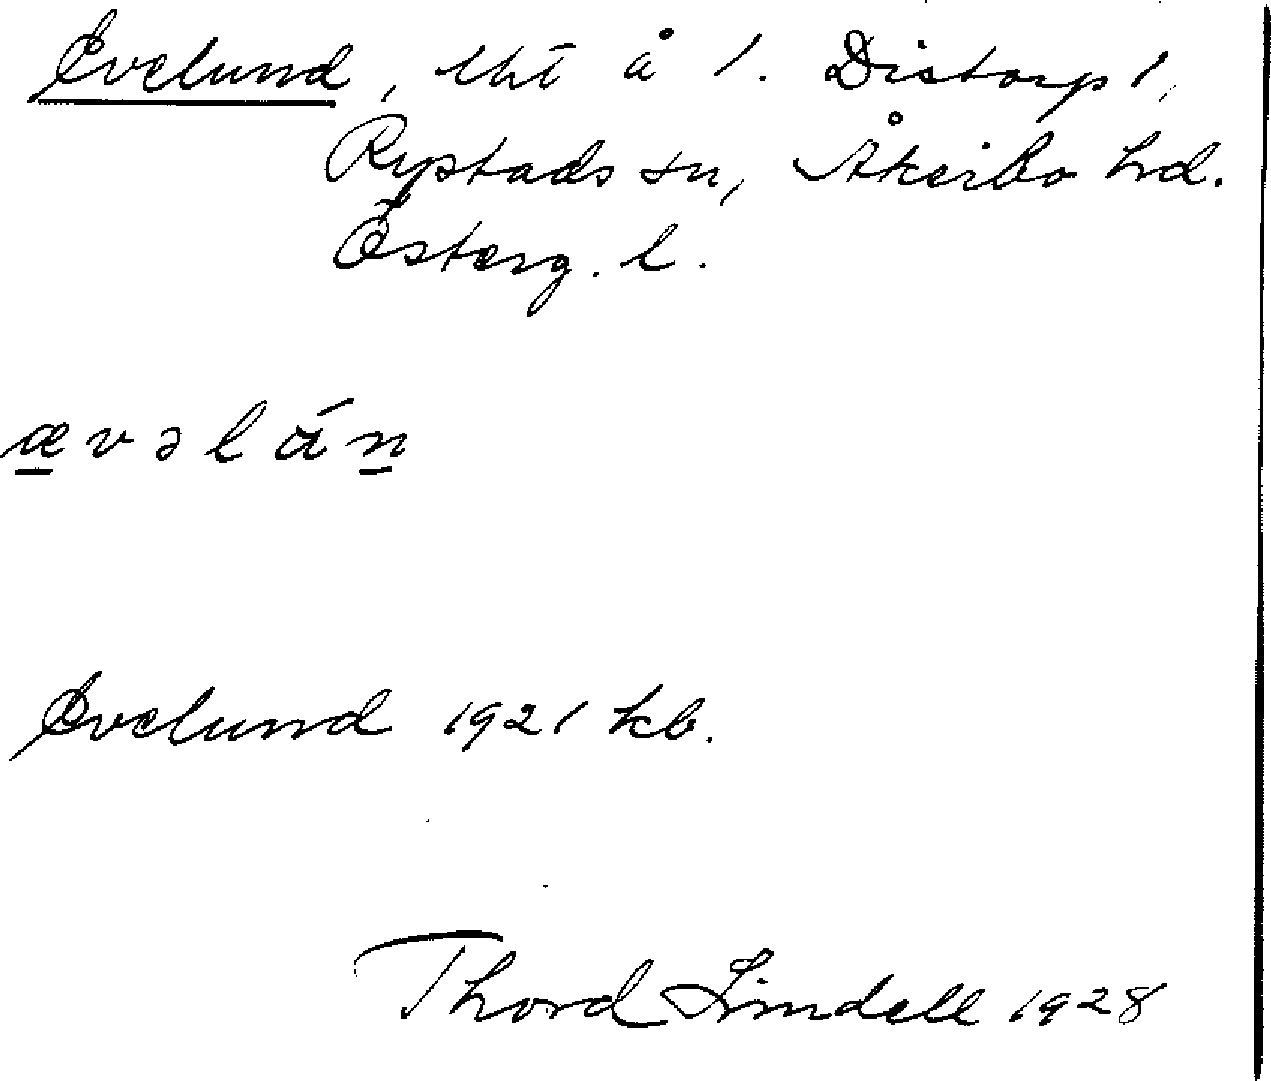 Evelund, lht å 1. Distorp 1,
Rystads sn, Åkerbo hd.
Österg. l.
ævəlán
Evelund 1921 kb.
Thord Lindell 1928